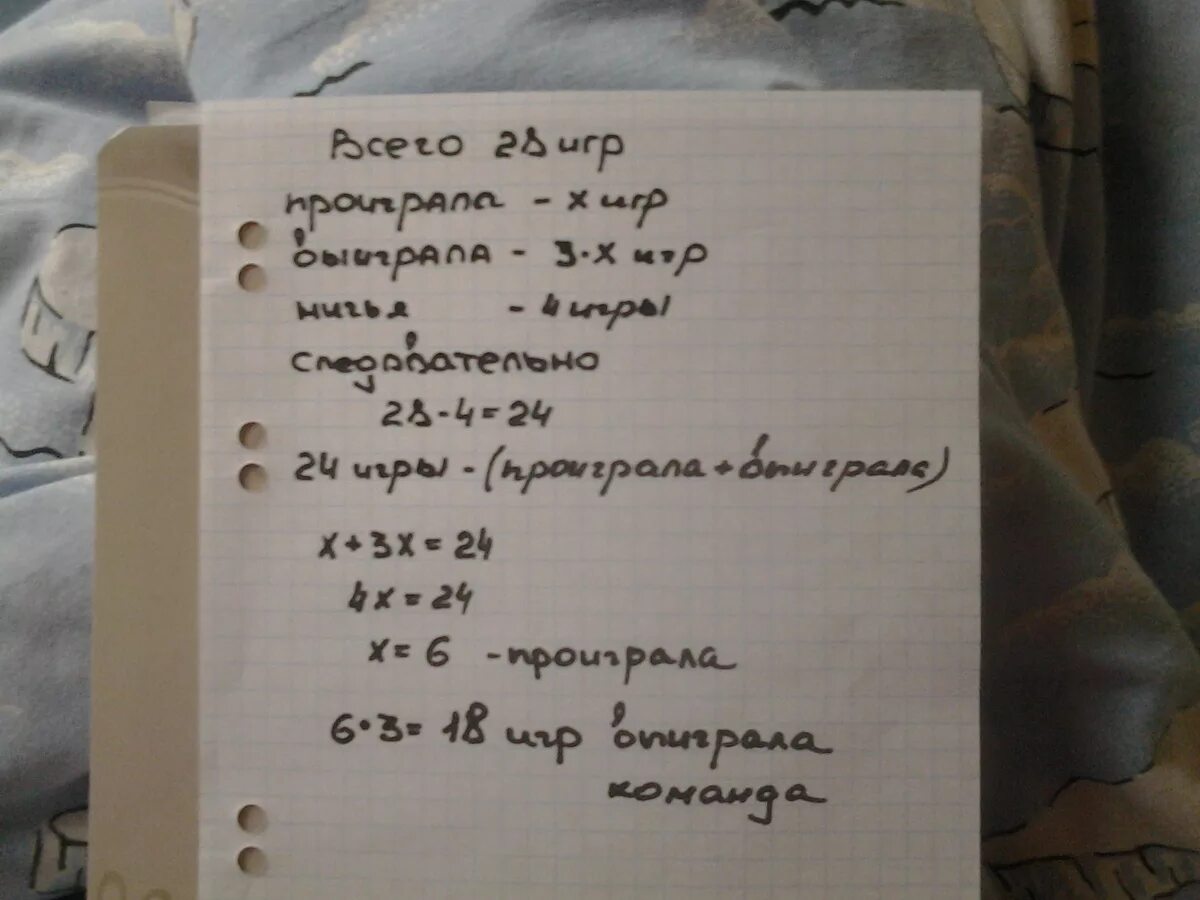 Всего 28 игр
проиграла - х игр
выиграла - 3·х игр
ничья - 4 игры
следовательно
28-4=24
24 игры - (проиграла + выиграла)
х+3х=24
4х=24
х=6 - проиграла
6·3=18 игр выиграла
команда